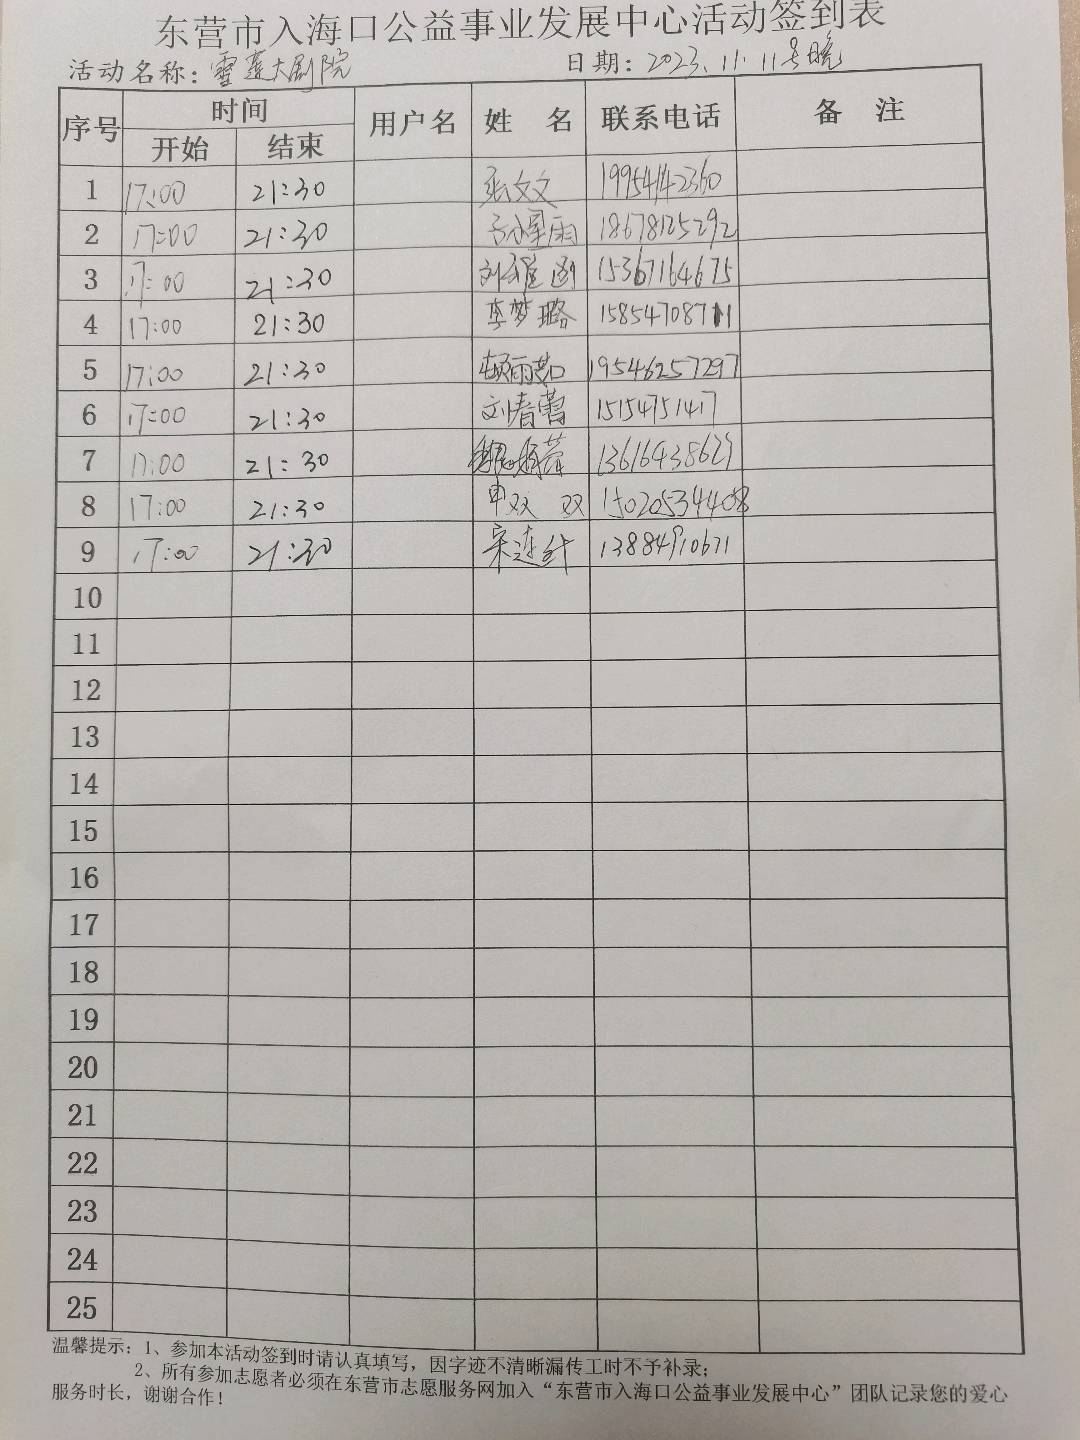 东营市入海口公益事业发展中心活动签到表
活动名称：雪莲大剧院 日期：2023.11.11号晚
序号 时间 用户名 姓 名 联系电话 备 注
开始 结束
1 17:00 21:30 张文文 19954142360
2 17:00 21:30 18678125292
3 17:00 21:30 15367164675
4 17:00 21:30 李梦璐 15854708711
5 17:00 21:30 顿雨茹 19546257297
6 17:00 21:30 刘春蕾 15154751417
7 17:00 21:30 13616438629
8 17:00 21:30 申双双 15020534408
9 17:00 21:30 宋连针 13884910671
10
11
12
13
14
15
16
17
18
19
20
21
22
23
24
25
温馨提示：1、参加本活动签到时请认真填写，因字迹不清晰漏传工时不予补录；
2、所有参加志愿者必须在东营市志愿服务网加入“东营市入海口公益事业发展中心”团队记录您的爱心
服务时长，谢谢合作！